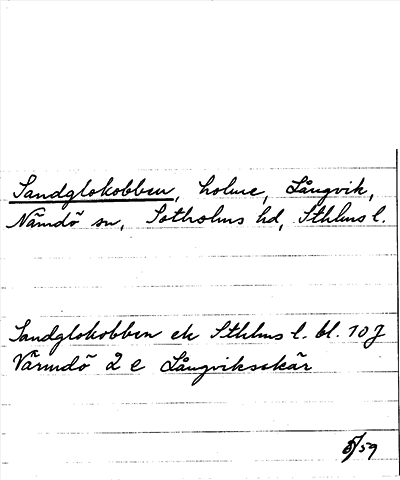 Sandglokobben, holme, Långvik,
Nämdö sn, Sotholms hd, Sthlms l.
Sandglokobben ek Sthlms l. bl. 10 J
Värmdö 2 e Långviksskär
5/59